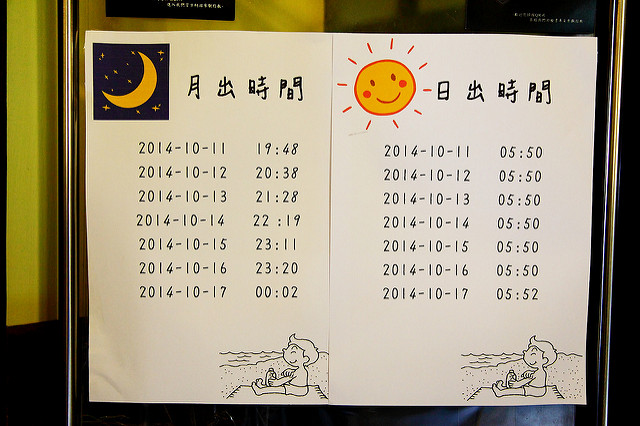 月出時間
2014-10-11 19:48
2014-10-12 20:38
2014-10-13 21:28
2014-10-14 22:19
2014-10-15 23:11
2014-10-16 23:20
2014-10-17 00:02
日出時間
2014-10-11 05:50
2014-10-12 05:50
2014-10-13 05:50
2014-10-14 05:50
2014-10-15 05:50
2014-10-16 05:50
2014-10-17 05:52